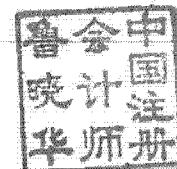 中国注册
会计师
鲁晓华